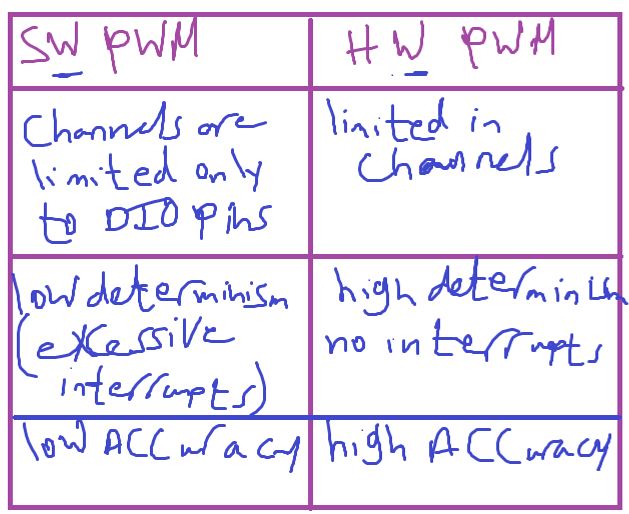 SW PWM
HW PWM
Channels are
limited only
to DIO pins
limited in
channels
low determinism
(excessive
interrupts)
high determinism
no interrupts
low ACCuracy
high ACCuracy